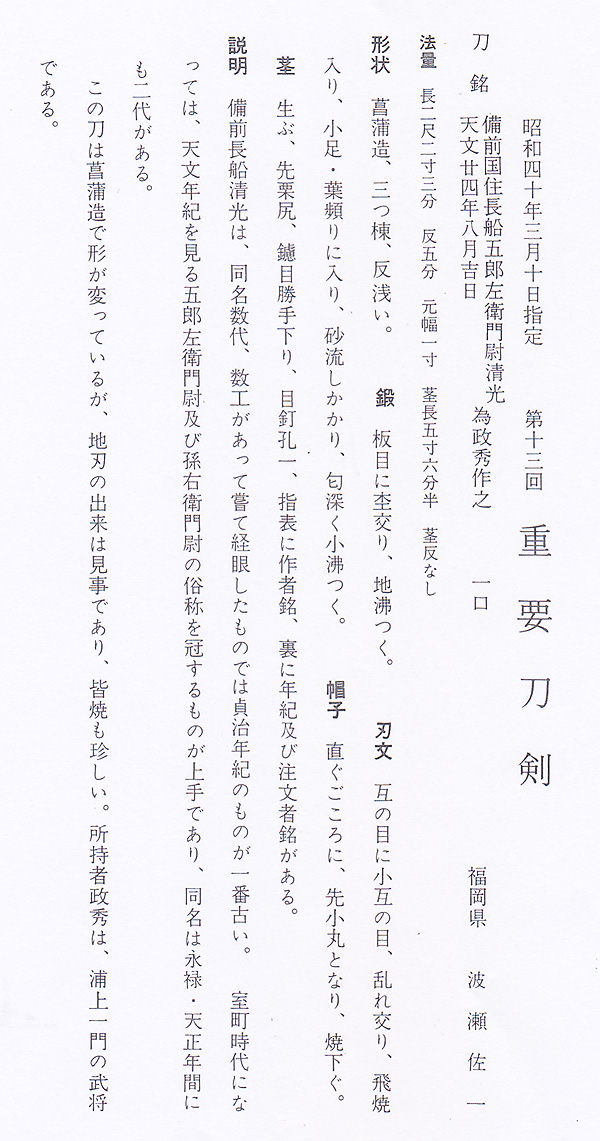 昭和四十年三月十日指定　第十三回　重要刀剣
刀　銘　備前国住長船五郎左衛門尉清光　為政秀作之　一口　福岡県　波瀬佐一
天文廿四年八月吉日
法量　長二尺二寸三分　反五分　元幅一寸　茎長五寸六分半　茎反なし
形状　菖蒲造、三つ棟、反浅い。　鍛　板目に杢交り、地沸つく。　刃文　互の目に小互の目、乱れ交り、飛焼
入り、小足・葉頻りに入り、砂流しかかり、匂深く小沸つく。　帽子　直ぐごころに、先小丸となり、焼下ぐ。
茎　生ぶ、先栗尻、鑢目勝手下り、目釘孔一、指表に作者銘、裏に年紀及び注文者銘がある。
説明　備前長船清光は、同名数代、数工があって嘗て経眼したものでは貞治年紀のものが一番古い。　室町時代にな
っては、天文年紀を見る五郎左衛門尉及び孫右衛門尉の俗称を冠するものが上手であり、同名は永禄・天正年間に
も二代がある。
この刀は菖蒲造で形が変っているが、地刃の出来は見事であり、皆焼も珍しい。所持者政秀は、浦上一門の武将
である。